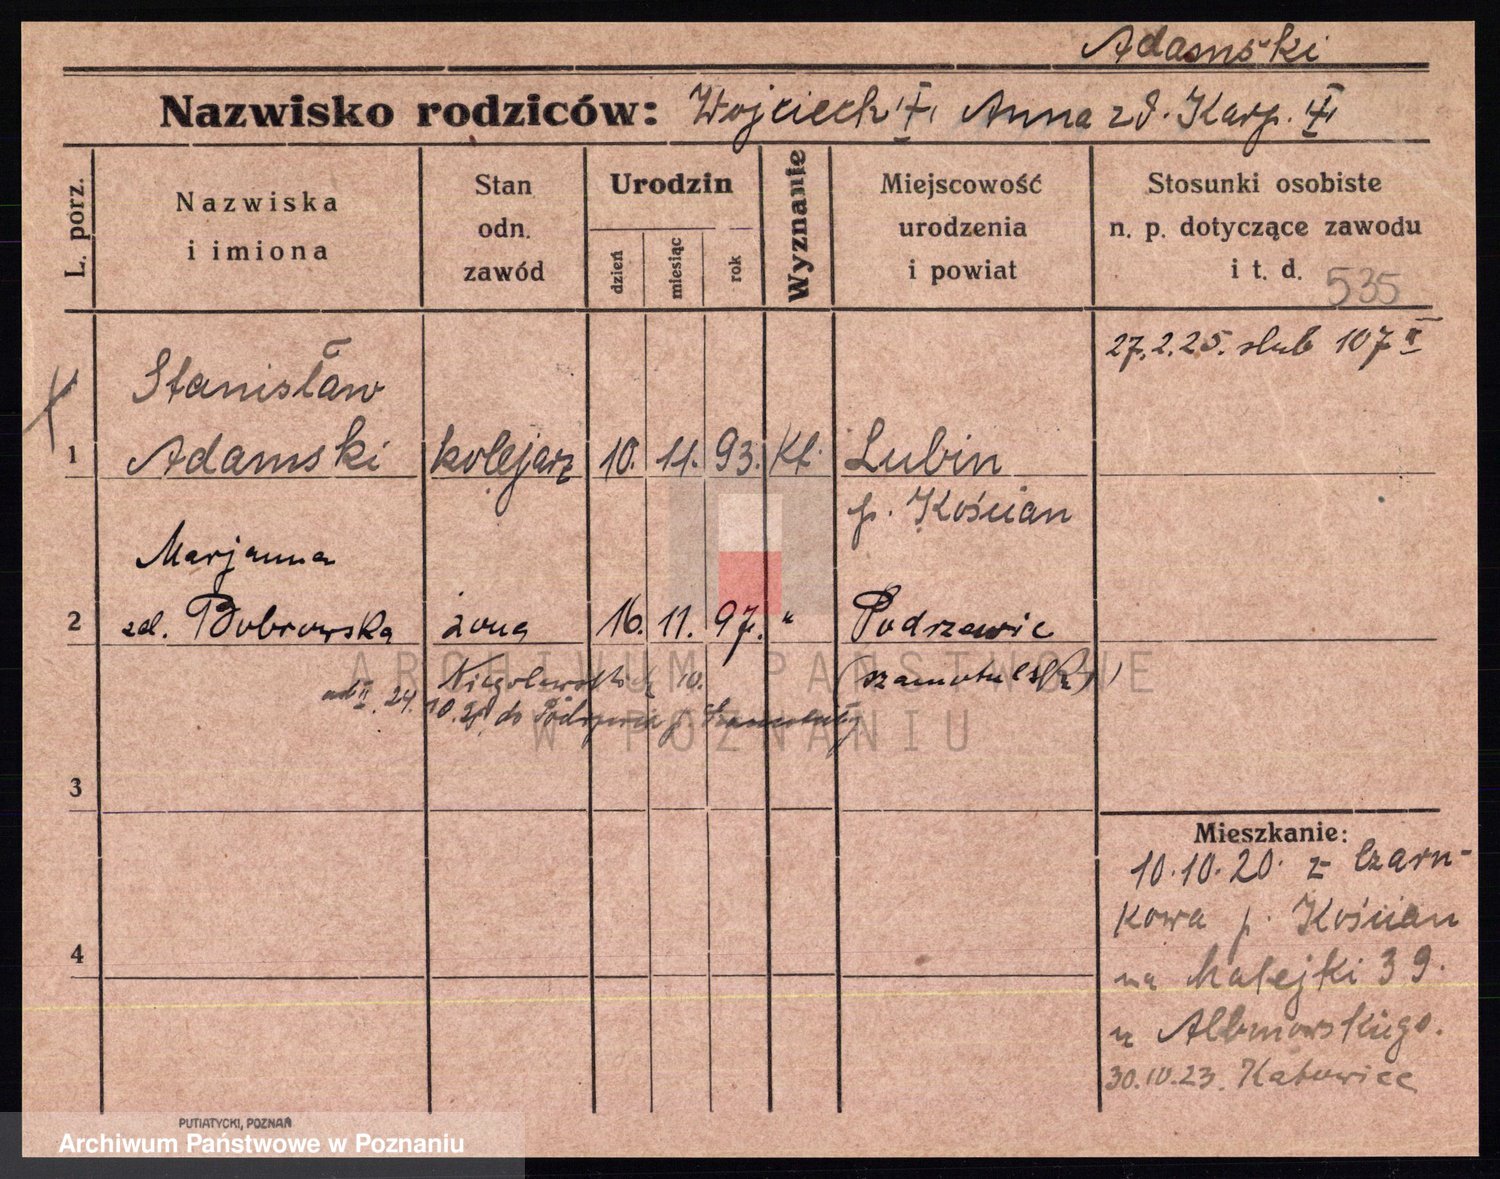 Adamski
Nazwisko rodziców: Wojciech Anna zd. Karp.
L. porz.
Nazwiska
i imiona
Stan
odn.
zawód
Urodzin
dzień
miesiąc
rok
Wyznanie
Miejscowość
urodzenia
i powiat
Stosunki osobiste
n. p. dotyczące zawodu
i t. d.
535
27.2.25. slub 107 II
Stanisław
1 Adamski kolejarz 10. 11. 93. Kt. Lubin
p. Kościan
Marjanna
2 zd. Bobrowska żona 16. 11. 97. " Podrzewie
szamotulski
10.
24. 10. do p. Szamotuły
3
4
Mieszkanie:
10.10.20. z Czarn-
kowa p. Kościan
na Matejki 39.
u
30.10.23. Katowice
ARCHIWUM PAŃSTWOWE
W POZNANIU
PUTIATYCKI, POZNAŃ
Archiwum Państwowe w Poznaniu